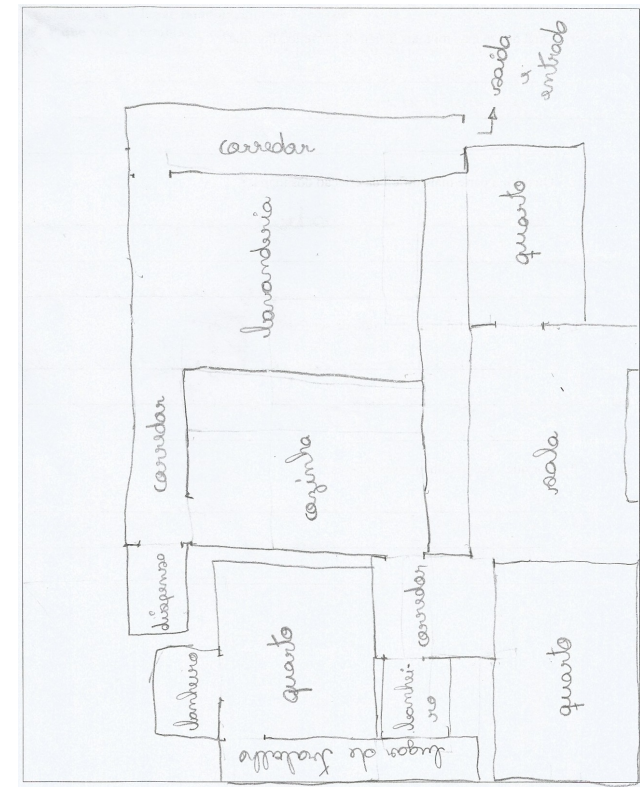 saída
e
entrada
corredor
quarto
lavanderia
corredor
cozinha
sala
dispensa
corredor
banheiro
quarto
banhei-
ro
quarto
lugar de trabalho